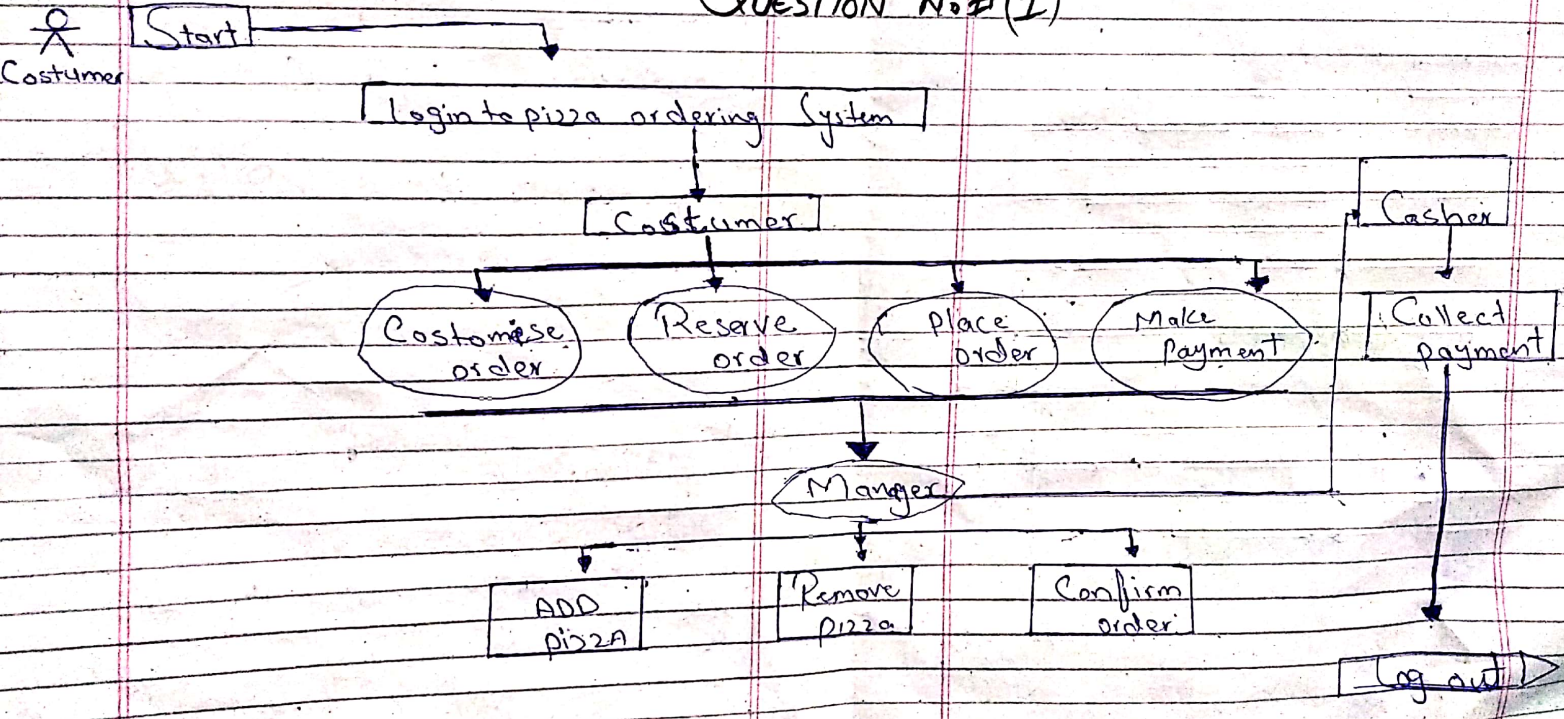 QUESTION No#(I)
Start
Costumer
Login to pizza ordering System
Costumer
Casher
Costomise
order
Reserve
order
Place
order
Make
Payment
Collect
payment
Manger
ADD
pizzA
Remove
pizza
Confirm
order
Log out